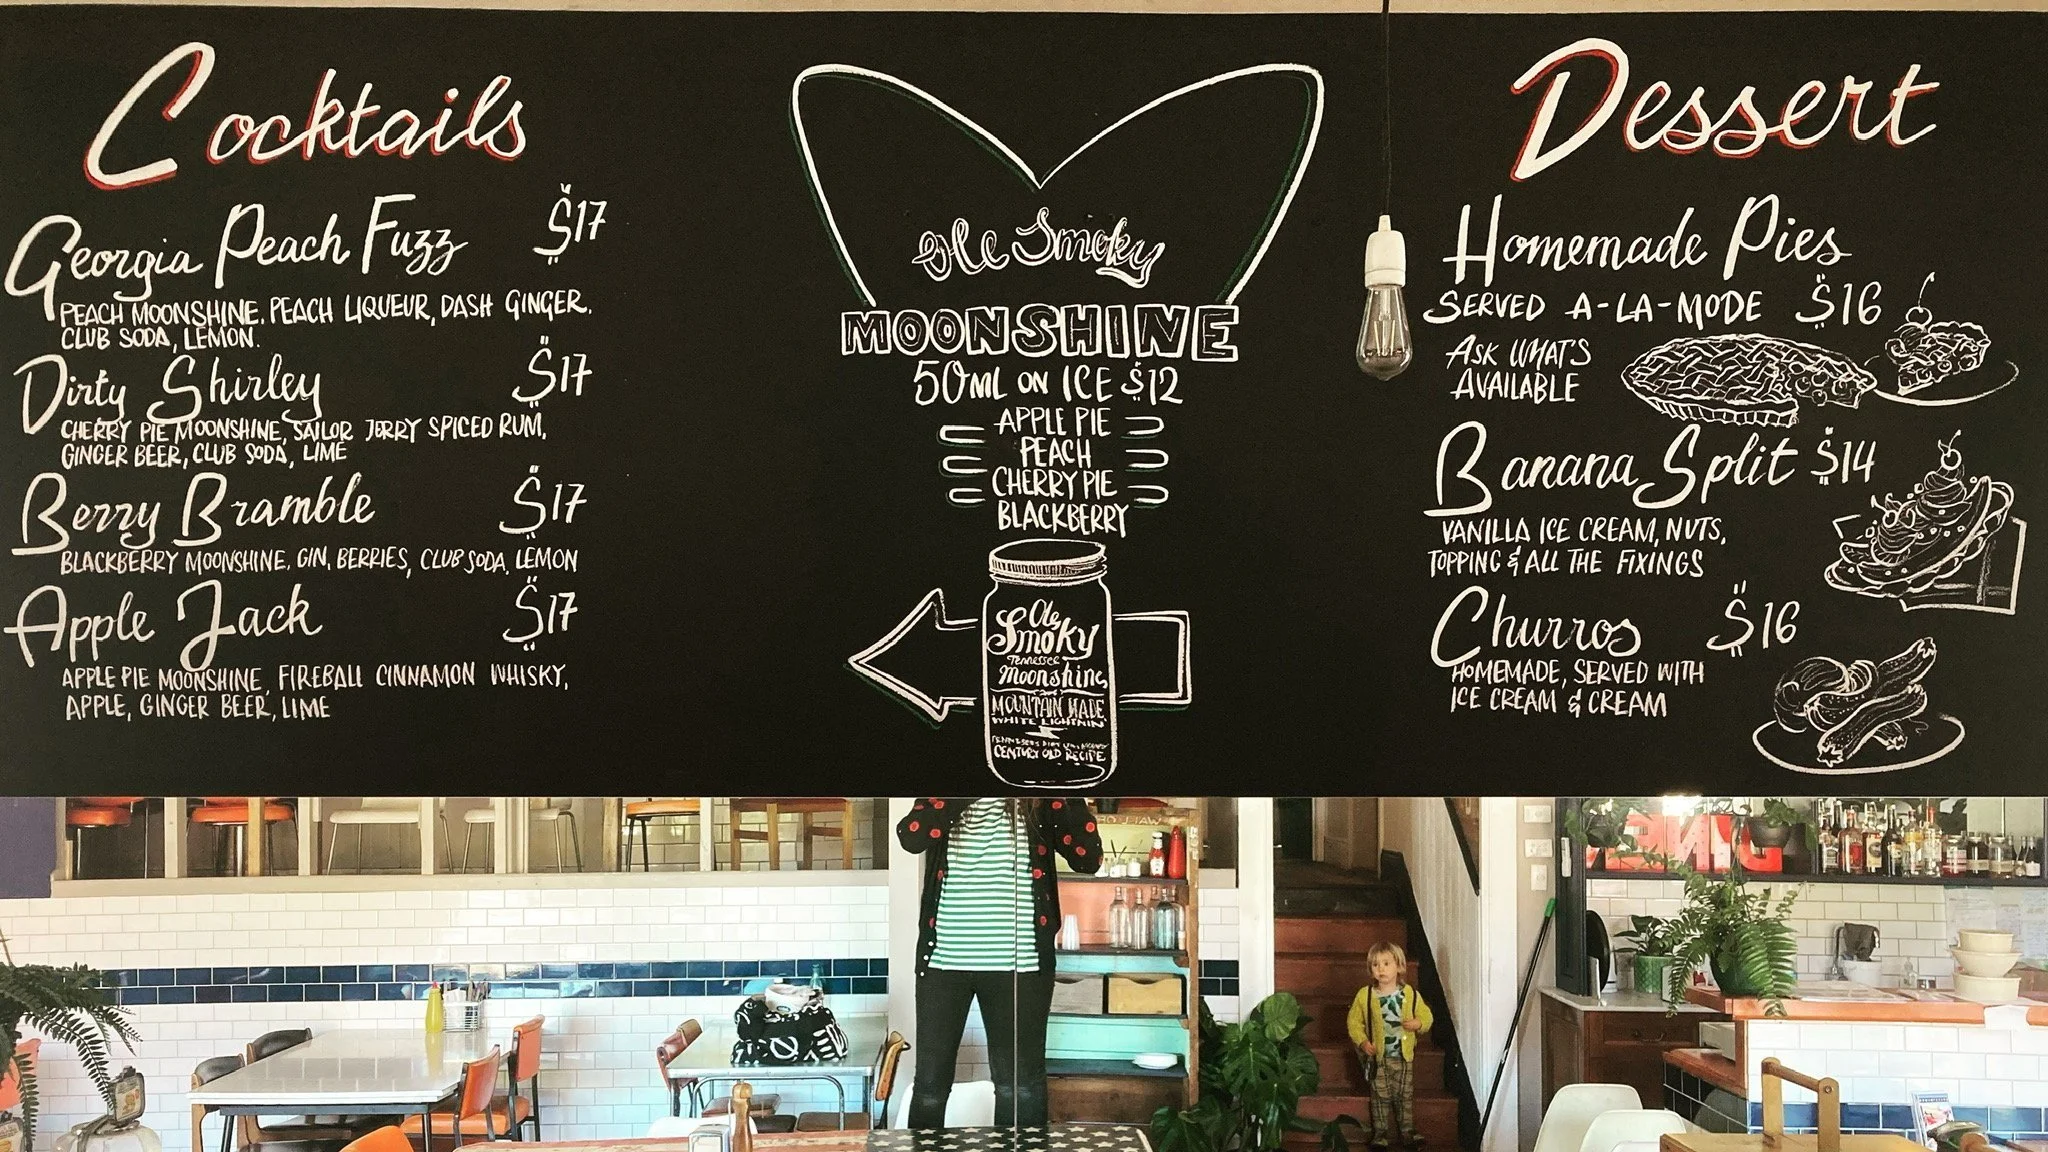 Cocktails
Georgia Peach Fuzz $17
PEACH MOONSHINE. PEACH LIQUEUR, DASH GINGER.
CLUB SODA, LEMON.
Dirty Shirley $17
CHERRY PIE MOONSHINE, SAILOR JERRY SPICED RUM,
GINGER BEER, CLUB SODA, LIME
Berry Bramble $17
BLACKBERRY MOONSHINE, GIN, BERRIES, CLUB SODA, LEMON
Apple Jack $17
APPLE PIE MOONSHINE, FIREBALL CINNAMON WHISKY,
APPLE, GINGER BEER, LIME
Ole Smoky
MOONSHINE
50ML ON ICE $12
APPLE PIE
PEACH
CHERRY PIE
BLACKBERRY
Ole
Smoky
Tennessee
Moonshine
MOUNTAIN MADE
WHITE LIGHTNIN'
CENTURY OLD RECIPE
Dessert
Homemade Pies
SERVED A-LA-MODE $16
ASK WHAT'S
AVAILABLE
Banana Split $14
VANILLA ICE CREAM, NUTS,
TOPPING & ALL THE FIXINGS
Churros $16
HOMEMADE, SERVED WITH
ICE CREAM & CREAM